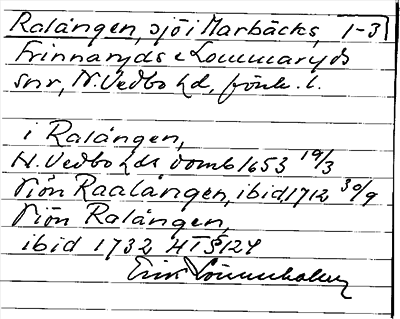 Ralången, sjö i Marbäcks, 1-3
Frinnaryds o Lommaryds
snr, N. Vedbo hd, Jönk. l.
i Ralången,
N. Vedbo hds domb 1653 19/3
Siön Raalången, ibid 1712 30/9
Siön Ralången,
ibid 1732 HT § 124
Erik